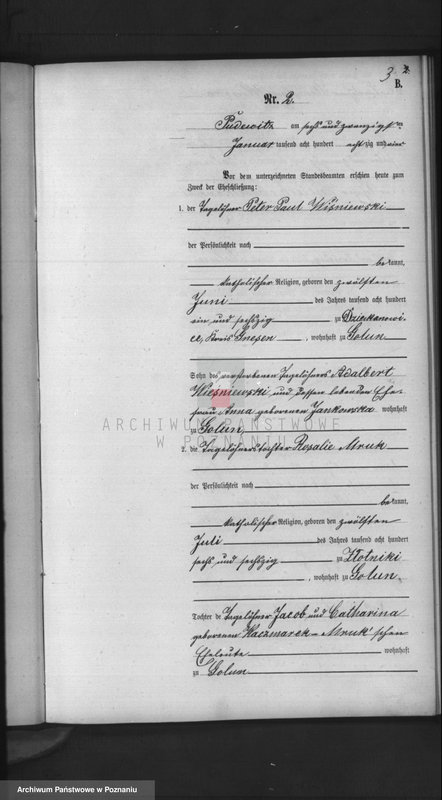 3
B.
Nr. 2.
Pudewitz am sechs und zwanzigsten
Januar tausend acht hundert achtzig und vier
Vor dem unterzeichneten Standesbeamten erschien heute zum
Zweck der Eheschließung:
1. der Tagelöhner Peter Paul Wiśniewski
der Persönlichkeit nach
bekannt,
katholischer Religion, geboren den zwölften
Juni des Jahres tausend acht hundert
ein und sechszig zu Dziekanowi-
ce, Kreis Gnesen, wohnhaft zu Golun
Sohn des verstorbenen Tagelöhners Adalbert
Wiśniewski und dessen lebenden Ehe-
frau Anna geborenen Jankowska wohnhaft
zu Golun,
ARCHIWUM PAŃSTWOWE
W POZNANIU
2. die Tagelöhnerstochter Rosalie Mruk
der Persönlichkeit nach
bekannt,
katholischer Religion, geboren den zwölften
Juli des Jahres tausend acht hundert
sechs und sechszig zu Złotniki
, wohnhaft zu Golun,
Tochter der Tagelöhner Jacob und Catharina
geborenen Kaczmarek - Mruk'schen
Eheleute wohnhaft
zu Golun
Archiwum Państwowe w Poznaniu